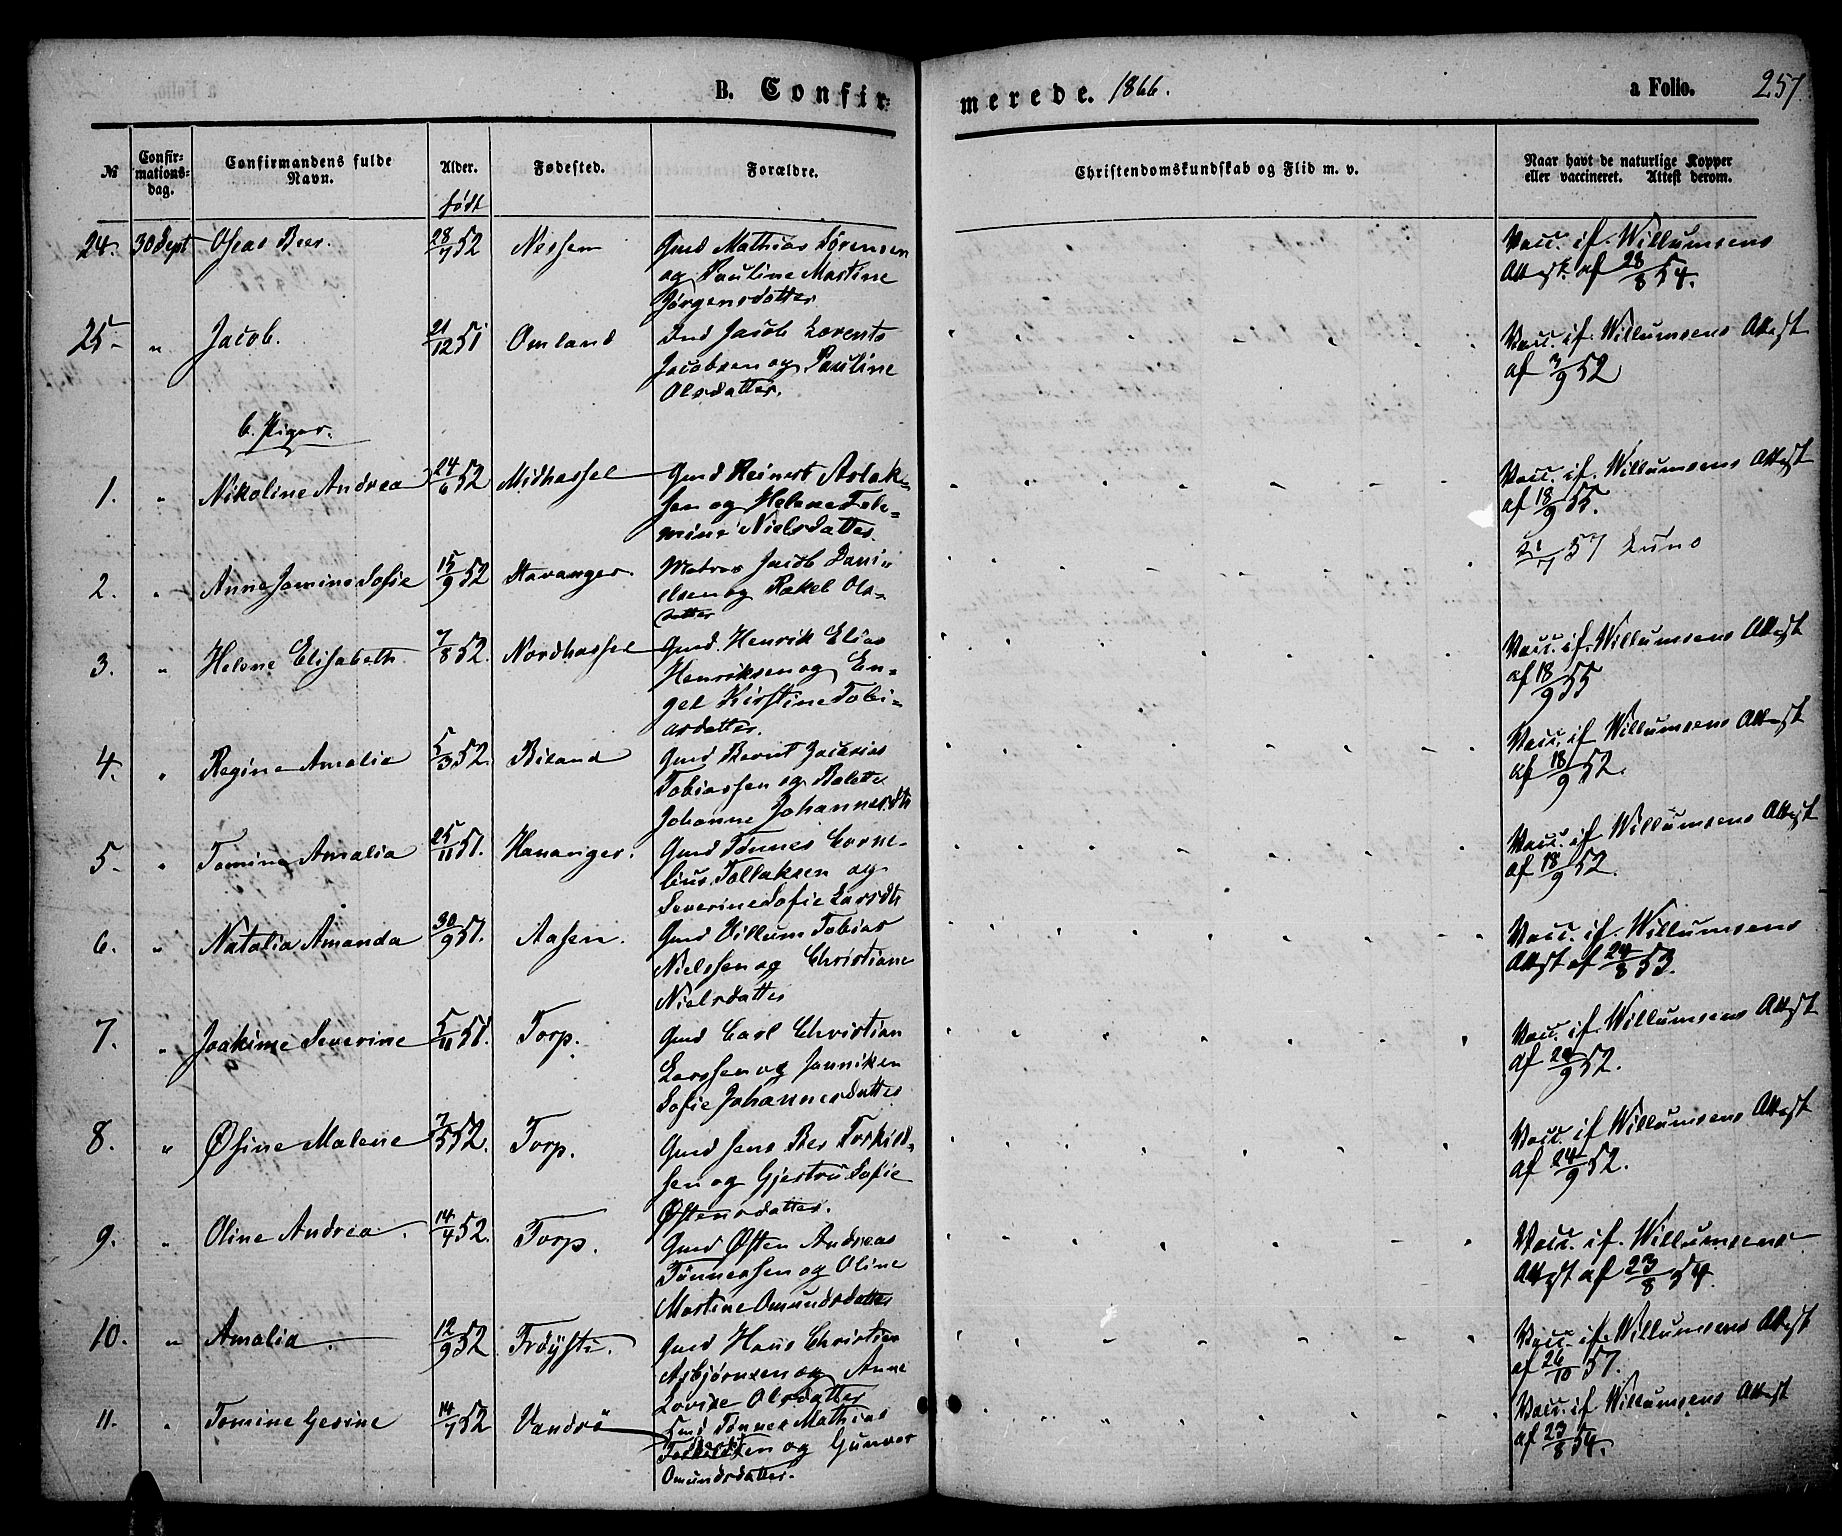 B. Confir-
merede. 1866.
a Folio. 257
№
Confir-
mations-
dag.
Confirmandens fulde
Navn.
Alder.
født
Fødested.
Forældre.
Christendomskundskab og Flid m. v.
Naar havt de naturlige Kopper
eller vaccineret. Attest derom.
24. 30 Sept Oseas Beer. 28/7 52 Nessem Gmd Mathias Sørensen
og Pauline Martine
Jørgensdatter
Vacc. if. Willumsens
Attest. af 28/8 54.
25. " Jacob. 21/12 51 Omland Ind Jacob Lorents
Jacobsen og Pauline
Olsdatter.
Vacc. if. Willumsens Attest
af 3/9 52
b. Piger.
1. " Nikoline Andrea 24/6 52 Midhassel Gmd Reinert Aslak-
sen og Helene Tole-
mine Nielsdatter.
Vacc. if. Willumsens Attest
af 18/9 55.
2. " Anne Jomine Sofie 15/9 52 Stavanger. Matros Jacob Dani-
elsen og Rakel Ols-
datter
57 Luno
3. " Helene Elisabeth 7/8 52. Nordhassel Gmd. Henrik Elias
Henriksen og En-
gel Kirstine Tobi-
asdatter.
Vacc. if. Willumsens Attest
af 18/9 55
4. " Regine Amalia 5/3 52. Biland Gmd Bernt Zacarias
Tobiassen og Bolette
Johanne Johannesdtr
Vacc. if Willumsens Attest
af 18/9 52.
5. " Tomine Amalia 25/11 51. Hananger. Gmd Tønnes Corne-
lius Tollaksen og
Severine Sofie Larsdtr
Vacc. if Willumsens Attest
af 18/9 52.
6. " Natalia Amanda 30/9 51. Aasen. Gmd Villum Tobias
Nielssen og Christiane
Nielsdatter
Vacc. if. Willumsens
Attest af 24/8 53.
7. " Joakime Severine 5/11 51. Torp. Gmd Carl Christian
Larssen og Janniken
Sofie Johannesdatter
Vacc. if. Willumsens Attest
af 24/9 52.
8. " Øsine Malene 7/5 52. Torp. Gmd Jens Ber Torkild-
sen og Gjertru Sofie
Østensdatter.
Vacc. if Willumsens Attest
af 24/9 52.
9. " Oline Andrea. 14/4 52. Torp. Gmd Østen Andreas
Tønnessen og Oline
Martine Omundsdatter
Vacc. if. Willumsens
Attest af 23/8 54.
10. " Amalia 12/9 52 Trøyste. Gmd Hans Christian
Asbjørnsen og Anne
Lovise Olsdatter
Vacc. if. Willumsens Attest
af 26/10 57.
11. " Tomine Gesine 14/7 52 Vandsø Gmd Tønnes Mathias
og Gunvor
Omundsdatter.
Vacc. if Willumsens Attest
af 23/8 54.